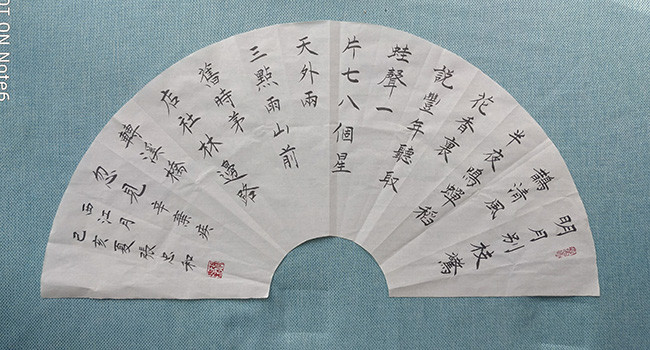 明月别枝驚
鵲清風
半夜鳴蟬稻
花香裏
説豐年聽取
蛙聲一
片七八個星
天外雨
三點雨山前
舊時茅
店社林邊路
轉溪橋
忽見 辛棄疾
西江月
己亥夏張和
OT ON Note6